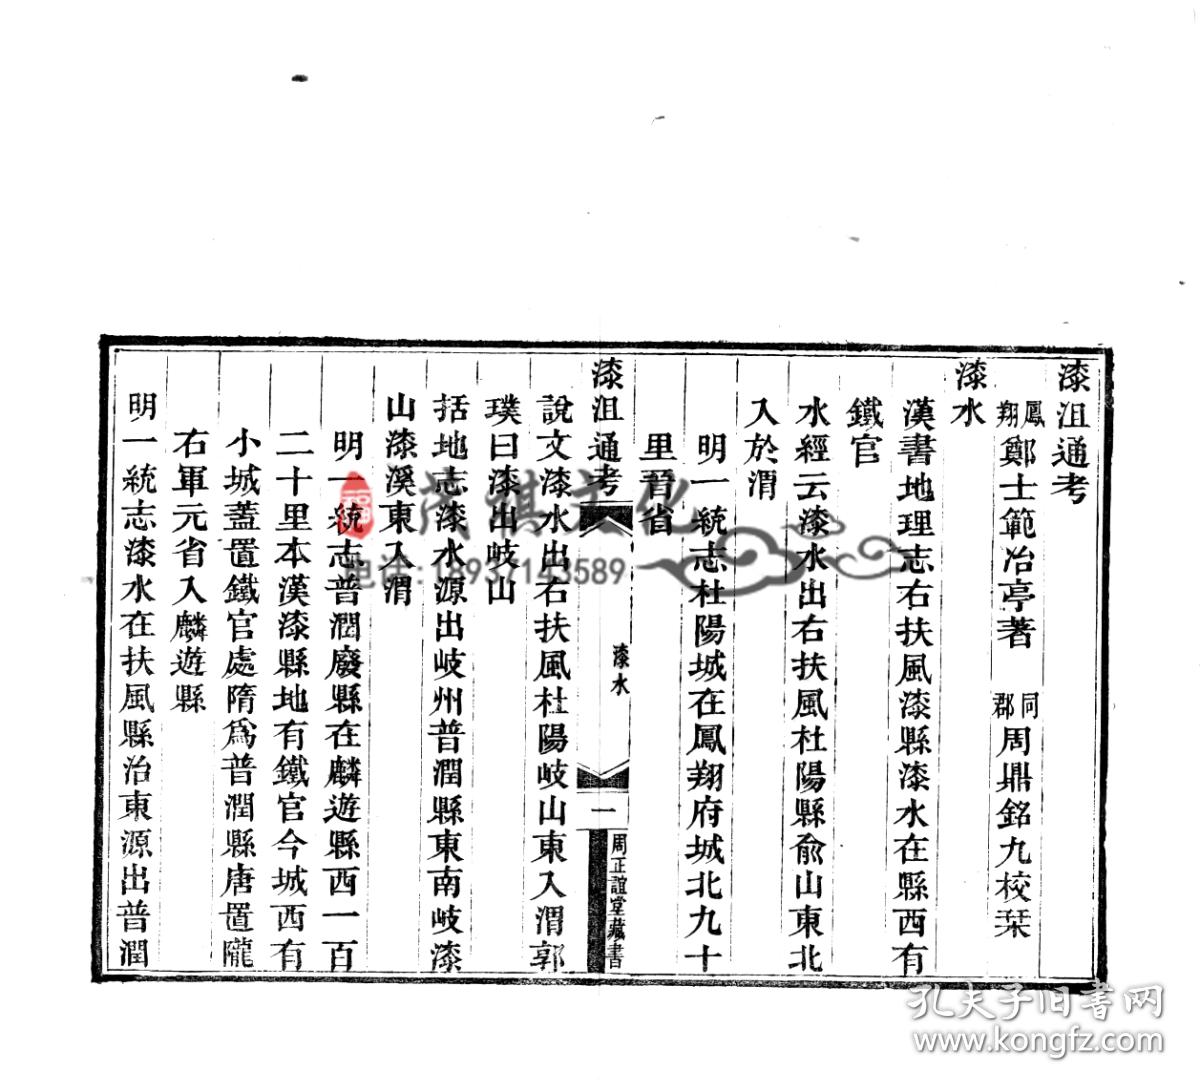 漆沮通考
鳳翔鄭士範冶亭著 同郡周鼎銘九校栞
漆水
漢書地理志右扶風漆縣漆水在縣西有
鐵官
水經云漆水出右扶風杜陽縣俞山東北
入於渭
明一統志杜陽城在鳳翔府城北九十
里晉省
漆沮通考
漆水
一
周正誼堂藏書
說文漆水出右扶風杜陽岐山東入渭郭
璞曰漆出岐山
括地志漆水源出岐州普潤縣東南岐漆
山漆溪東入渭
明一統志普潤廢縣在麟遊縣西一百
二十里本漢漆縣地有鐵官今城西有
小城蓋置鐵官處隋為普潤縣唐置隴
右軍元省入麟遊縣
明一統志漆水在扶風縣治東源出普潤
福
茂祺文化
电话:18937143589
孔夫子旧书网
www.kongfz.com